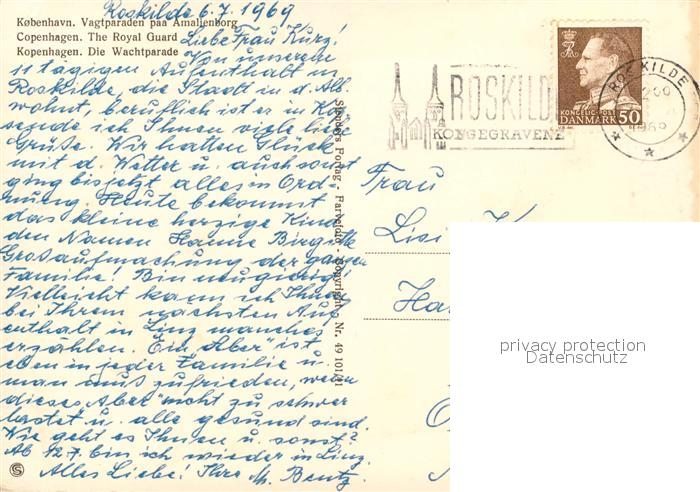 Roskilde 6.7.1969
København. Vagtparaden paa Amalienborg
Copenhagen. The Royal Guard
Kopenhagen. Die Wachtparade
Liebe Frau Kurz!
Von unserem
11 tägigen Aufenthalt in
Roskilde, die Stadt in d. Alb.
wohnt, beruflich ist er in Ko
sende ich Ihnen viele liebe
Grüße. Wir hatten Glück
mit d. Wetter u. auch sonst
ging bis jetzt alles in Ord-
nung. Heute bekommt
das kleine herzige Kind
den Namen Hanne Birgitte
Großaufmachung der ganzen
Familie! Bin neugierig!
Vielleicht kann ich Ihnen
bei Ihrem nächsten Auf
enthalt in Linz manches
erzählen. Ein "Aber" ist
eben in jeder Familie u.
man muß zufrieden, wenn
dieses "Aber" nicht zu schwer
lastet u. alle gesund sind.
Wie geht es Ihnen u. sonst?
Ab 12.7. bin ich wieder in Linz.
Alles Liebe! Ihre M. Bentz.
Farvefoto - Copyright - Nr. 49 101/21
ROSKILDE
KONGEGRAVENE
KONGELIG POST
DANMARK 50
ROSKILDE
Frau
Lisi
Ha
privacy protection
Datenschutz